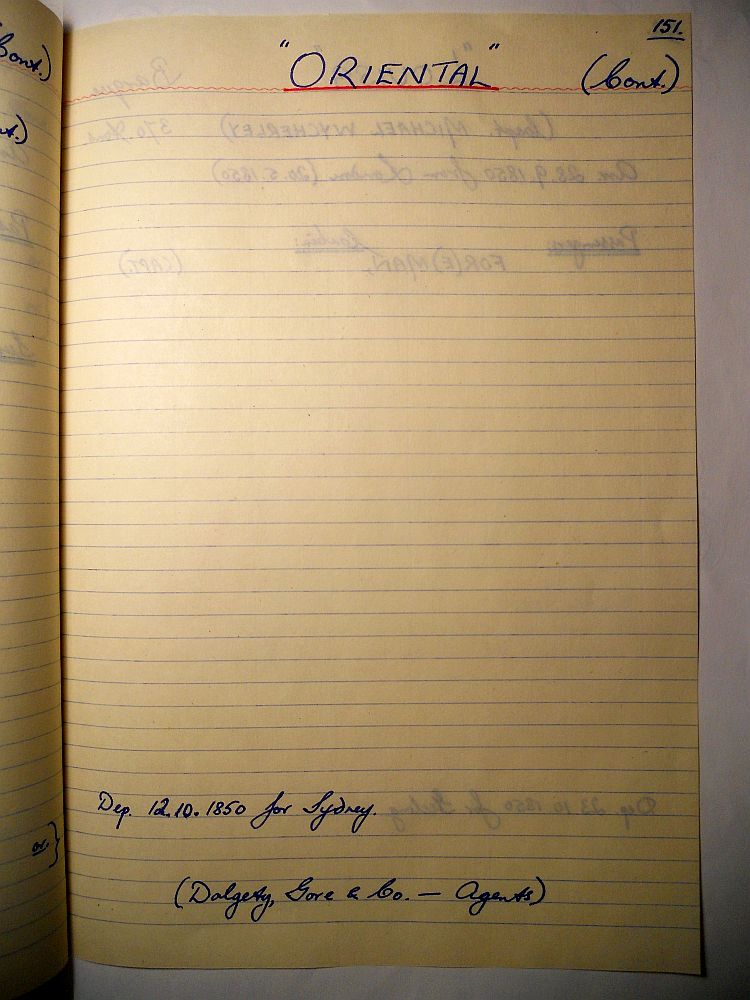 151.
"ORIENTAL" (Cont.)
Dep. 12.10.1850 for Sydney.
(Dalgety, Gore & Co. — Agents)
Cont.)
t.)